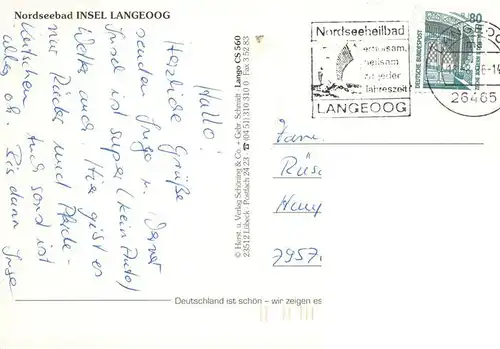 Nordseebad INSEL LANGEOOG
Hallo!
Herzliche Grüße
senden Inge u. 
Insel ist super (kein Auto)
Wetter auch. Hier gibt es
nur Räder und Pferde-
kutschen. Auch sonst ist
alles o.k. Bis dann Inge
© Herst. u. Verlag Schöning & Co. + Gebr. Schmidt · Lango CS 560
23512 Lübeck · Postfach 24 23 · ☎ (04 51) 310 31 0 · Fax 3 52 83
Nordseeheilbad
erholsam
heilsam
zu jeder
Jahreszeit
LANGEOOG
80
DEUTSCHE BUNDESPOST
26465
Fam.
Rüs
7957
Deutschland ist schön – wir zeigen es